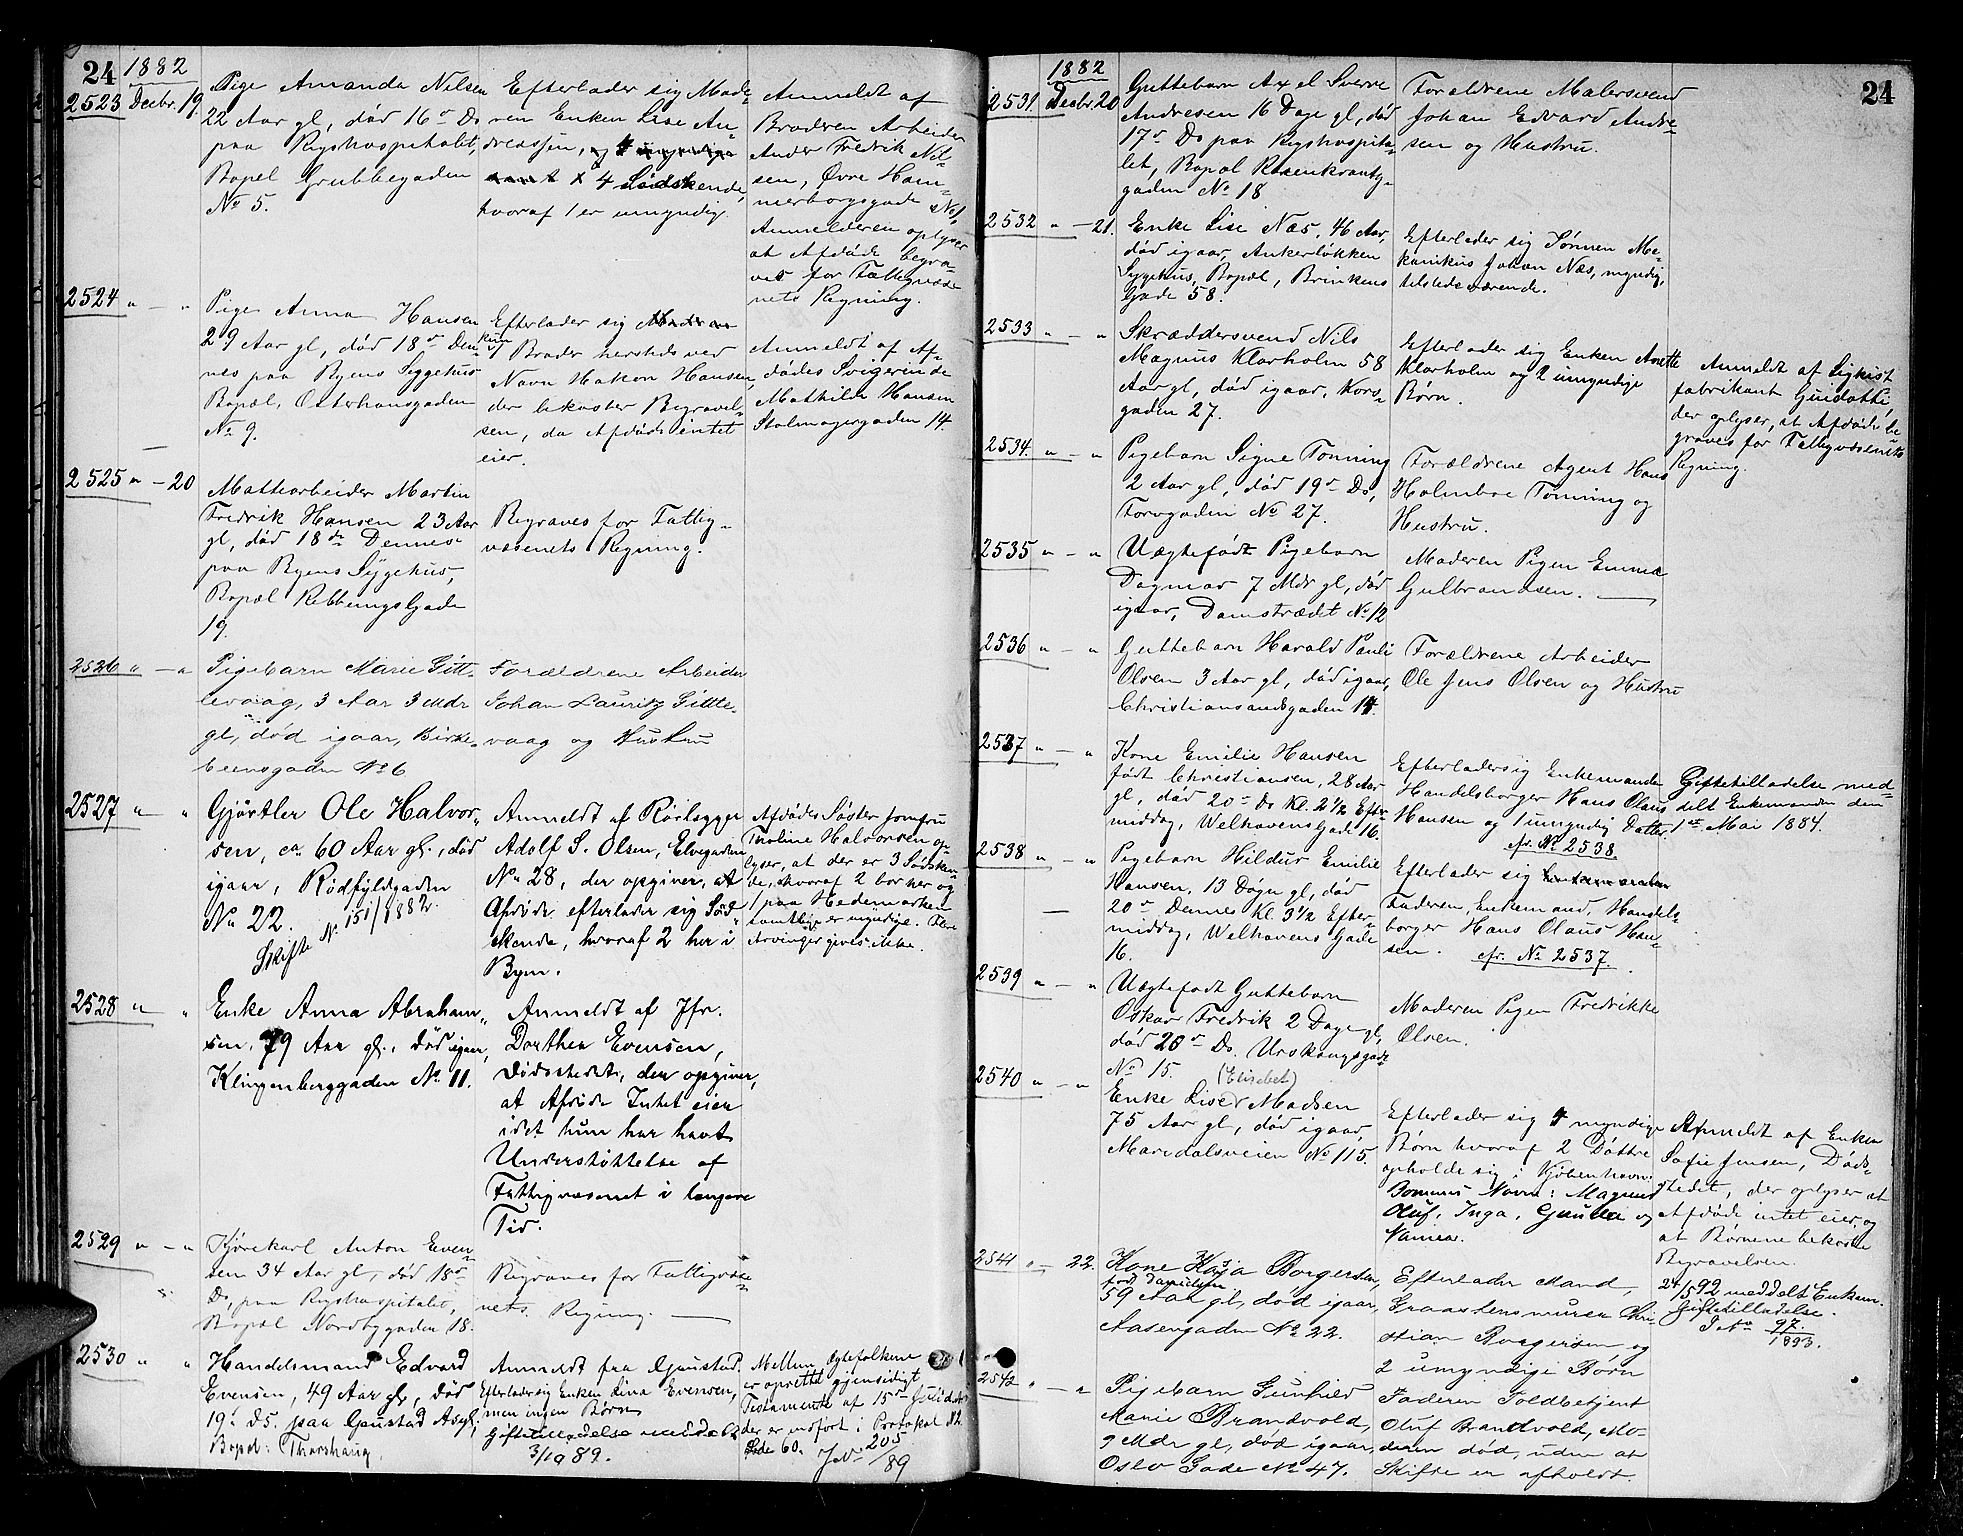 24 1882
2523 Decbr. 19.
Pige Amanda Nilsen
22 Aar gl., død 16de Ds
paa Rigshospitalet,
Bopæl Grubbegaden
No 5.
Efterlader sig Mode-
ren Enken Lise An-
dreassen,
4 Sødskende,
hvoraf 1 er umyndig.
Anmeldt af
Broderen Arbeider
Ander Fredrik Nil-
sen, Øvre Ham-
merborgsgade No 1,
Anmelderen oplyser
at Afdøde begra-
ves for Fattigvæse-
nets Regning.
2524 " — "
Pige Anna Hansen
29 Aar gl, død 18de Den-
nes paa Byens Sygehus
Bopæl, Osterhausgaden
No 9.
Efterlader sig Moderen
kun 1 Broder hersteds ved
Navn Hakon Hansen,
der bekoster Begravel-
sen, da Afdøde intet
eier.
Anmeldt af Af-
dødes Svigerinde
Mathilde Hansen
Stolmagergaden 14.
2525 " — 20
Mattearbeider Martin
Fredrik Hansen 23 Aar
gl, død 18de Dennes
paa Byens Sygehus,
Bopæl Rebbungs Gade
19.
Begraves for Fattig-
væsenets Regning.
2526 " — "
Pigebarn Marie Gitt-
levaag, 3 Aar 3 Mdr
gl, død igaar, Birke-
beensgaden No 6
Forældrene Arbeider
Johan Lauritz Gittle-
vaag og Hustru
2527 " "
Gjørtler Ole Halvor-
sen, ca 60 Aar gl., død
igaar, Rødfyldgaden
No 22.
Skifte No 151/1882.
Anmeldt af Rørlægger
Adolf S. Olsen, Elvegaden
No 28, der opgiver, at
Afdøde efterlader sig Sød-
skende, hvoraf 2 her i
Byen.
Afdødes Søster Jomfru
Tholine Halvorsen op-
lyser, at der er 3 Sødsken-
de, hvoraf 2 bor her og
1 paa Hedemarken
samtlige er myndige. Flere
Arvinger gives ikke.
2528 " "
Enke Anna Abraham-
sen, 79 Aar gl., død igaar,
Klingenberggaden No 11.
Anmeldt af Jfr.
Dorthea Evensen,
Dødsstedet, der opgiver,
at Afdøde Intet eier
idet hun har havt
Understøttelse af
Fattigvæsenet i længere
Tid.
2529 " — "
Kjørekarl Anton Even-
sen 34 Aar gl, død 18de
Ds, paa Rigshospitalet,
Bopæl Nordbygaden 18.
Begraves for Fattigvæse-
nets Regning.
2530 " "
Handelsmand Edvard
Evensen, 49 Aar gl, død
19. Ds. paa Gaustad Asyl,
Bopæl: Thorshaug,
Anmeldt fra Gaustad.
Efterlader sig Enken Lina Evensen,
men ingen Børn
Giftetilladelse meddelt
3/10 89.
Mellem Ægtefolkene
er oprettet gjensidigt
Testamente af 15de Juli
der er indført i Protokol No 2.
Side 60.
JNo 205/89
1882 24
2531. Decbr. 20
Guttebarn Axel Sverre
Andresen 16 Dage gl, død
17de Ds paa Rigshospita-
let, Bopæl Rosenkrantz-
gaden No 18
Forældrene Malersvend
Johan Edvard Andre-
sen og Hustru.
2532 " — 21.
Enke Lise Næs, 46 Aar,
død igaar, Ankerløkken
Sygehus, Bopæl, Brinkens
Gade 58.
Efterlader sig Sønnen Me-
kanikus Johan Næs, myndig,
tilstedeværende.
2533 " — "
Skræddersvend Nils
Magnus Klarholm 58
Aar gl, død igaar, Kors-
gaden 27.
Efterlader sig Enken Anette
Klarholm og 2 umyndige
Børn.
Anmeldt af Ligkist-
fabrikant Guidotti,
der oplyser, at Afdøde be-
graves for Fattigvæsenets
Regning.
2534. " — "
Pigebarn Signe Tønning
2 Aar gl, død 19de Ds,
Torvgaden No 27.
Forældrene Agent Hans
Holmboe Tønning og
Hustru.
2535 " — "
Uægtefødt Pigebarn
Dagmar 7 Mdr gl, død
igaar, Damstrædet No 12
Moderen Pigen Emma
Gulbrandsen.
2536 " — "
Guttebarn Harald Pauli
Olsen 3 Aar gl, død igaar,
Christiansandsgaden 14.
Forældrene Arbeider
Ole Jens Olsen og Hustru
2537 " — "
Kone Emilie Hansen
født Christiansen, 28 Aar
gl, død 20de Ds Kl. 2 1/2 Efter-
middag, Welhavens Gade 16.
Efterlader sig Enkemanden
Handelsborger Hans Olaus
Hansen og 1 umyndig Datter.
cfr. No 2538.
Giftetilladelse med-
delt Enkemanden den
1ste Mai 1884.
2538 " — "
Pigebarn Hildur Emilie
Hansen, 13 Døgn gl, død
20de Dennes Kl. 3 1/2 Efter-
middag, Welhavens Gade
16.
Efterlader sig
Faderen, Enkemand, Handels-
borger Hans Olaus Han-
sen. cfr. No 2537.
2539 " — "
Uægtefødt Guttebarn
Oskar Fredrik 2 Dage gl,
død 20de Ds. Urskougsgade
No 15.
Moderen Pigen Fredrikke
Olsen.
2540 " — "
(Elisebet)
Enke Lise Madsen
75 Aar gl, død igaar,
Maridalsveien No 115.
Efterlader sig 4 myndige
Børn hvoraf 2 Døttre
opholde sig i Kjøbenhavn.
Børnenes Navne: Magnus
Oluf, Inga, og
Anmeldt af Enken
Sofie Jensen, Døds-
stedet, der oplyser at
Afdøde intet eier, og
at Børnene bekoste
Begravelsen.
2541 " — 22.
Kone Kaja Borgersen,
født Davidsen
59 Aar gl, død igaar,
Aasengaden No 22.
Efterlader Mand,
Graastensmurer Chri-
stian Borgersen og
2 umyndige Børn
24/5 92 meddelt Enkem.
Giftetilladelse.
J No 97./1893.
2542 " — "
Pigebarn Gunhild
Marie Brandvold,
9 Mdr gl, død igaar,
Oslo Gade No 47.
Faderen Toldbetjent
Oluf Brandvold, Mo-
deren død, uden at
Skifte er afholdt.